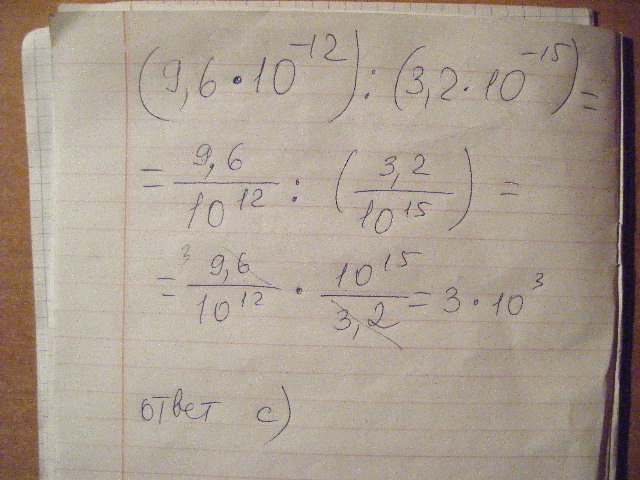 (9,6 · 10⁻¹²) : (3,2 · 10⁻¹⁵) =
= 9,6/10¹² : (3,2/10¹⁵) =
= ³ 9,6/10¹² · 10¹⁵/3,2 = 3 · 10³
ответ с)